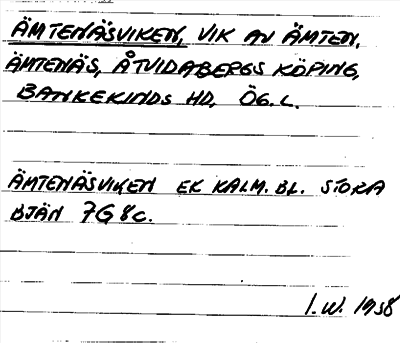 ÄMTENÄSVIKEN, VIK AV ÄMTEN,
ÄMTENÄS, ÅTVIDABERGS KÖPING,
BANKEKINDS HD, ÖG. L.
ÄMTENÄSVIKEN EK KALM. BL. STORA
BJÄN 7G 8c.
I. W. 1958